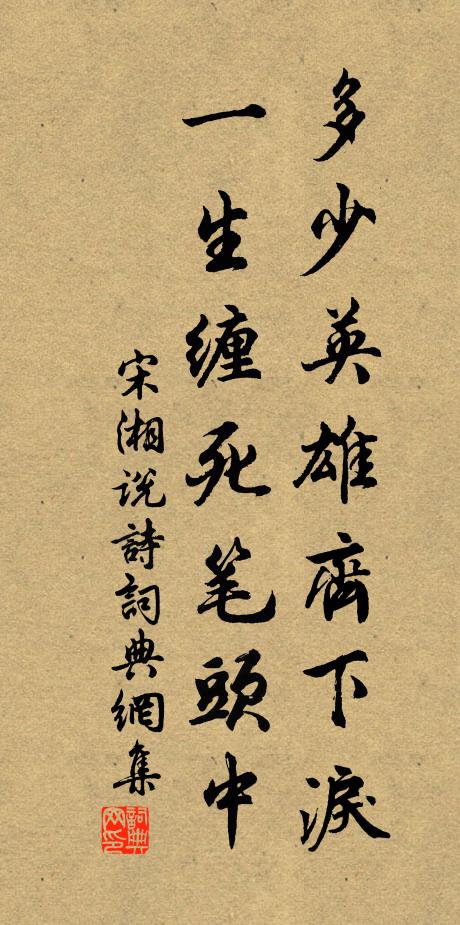 多少英雄齊下淚
一生缠死笔頭中
宋湘说詩詞典網集
詞典网印